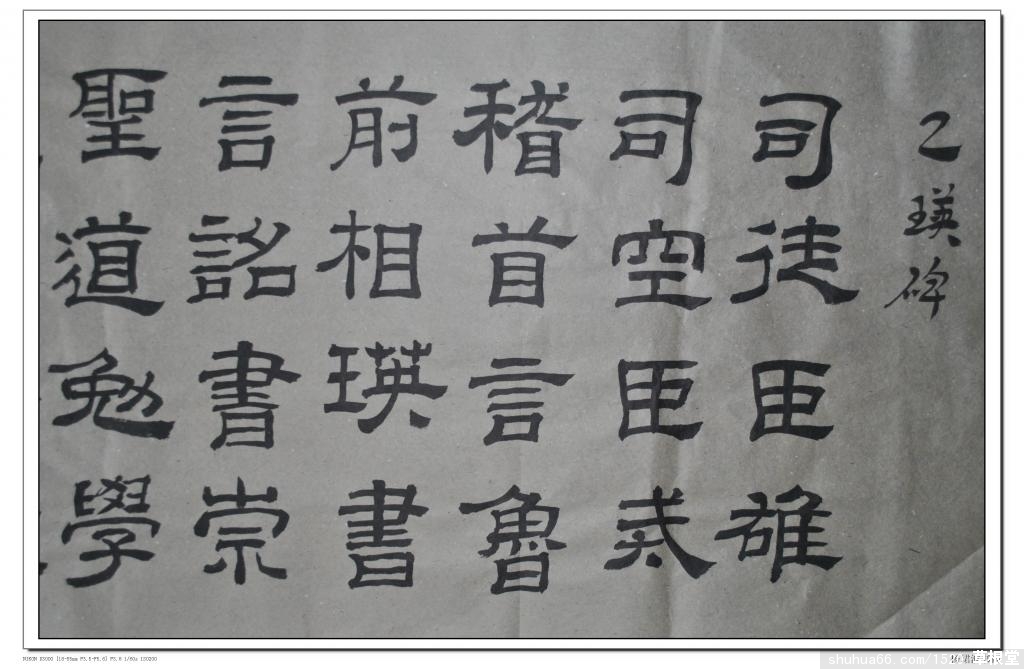 乙瑛碑
司徒臣雄
司空臣戒
稽首言魯
前相瑛書
言詔書崇
聖道勉學
NIKON D3000 (18-55mm F3.5-F5.6)
shuhua66.com
草根堂